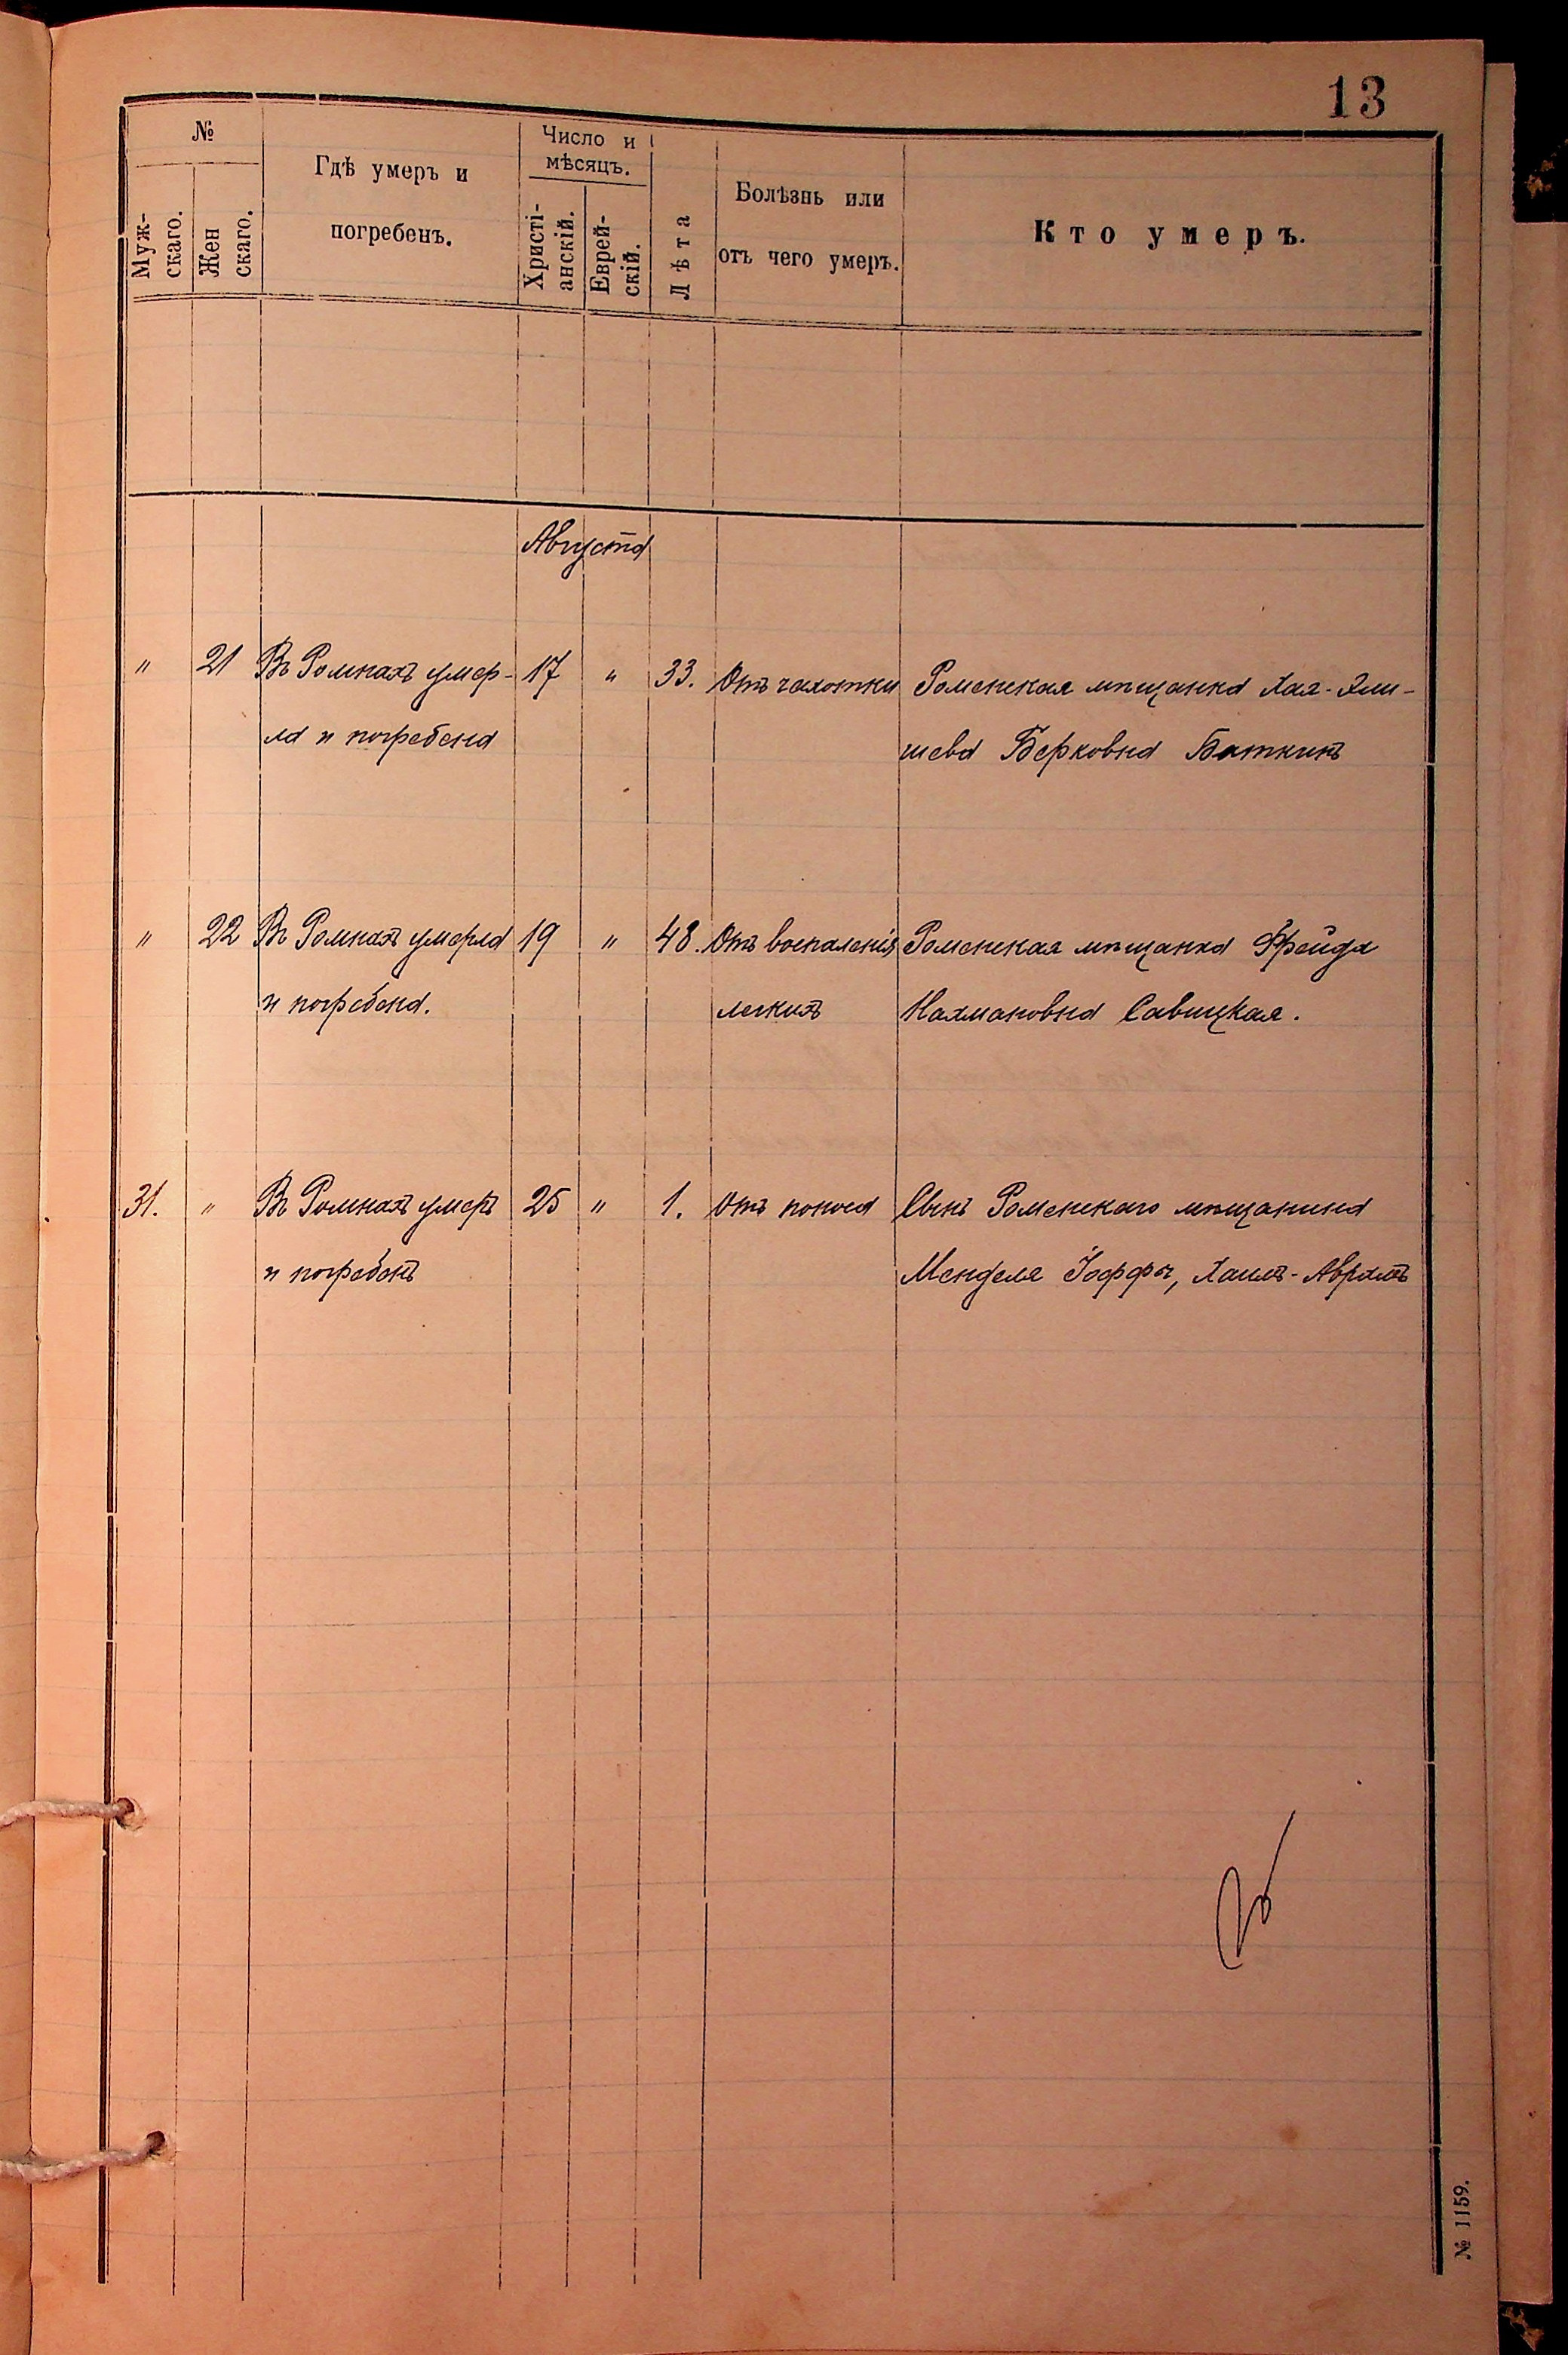 13
№
Муж-
скаго.
Жен
скаго.
Гдѣ умеръ и
погребенъ.
Число и
мѣсяцъ.
Христі-
анскій.
Еврей-
скій.
Лѣта
Болѣзнь или
отъ чего умеръ.
Кто умеръ.
Августа
" 21 Въ Ромнахъ умер- 17 " 33. Отъ чахотки Роменская мѣщанка Хая-Эли-
ла и погребена шева Берковна Баткинъ
" 22 Въ Ромнахъ умерла 19 " 48. Отъ воспаленія Роменская мѣщанка Фрейда
и погребена. легкихъ Нахмановна Савицкая.
31. " Въ Ромнахъ умеръ 25 " 1. Отъ поноса Сынъ Роменскаго мѣщанина
и погребенъ Менделя Іоффы, Хаимъ-Авраамъ
№ 1159.